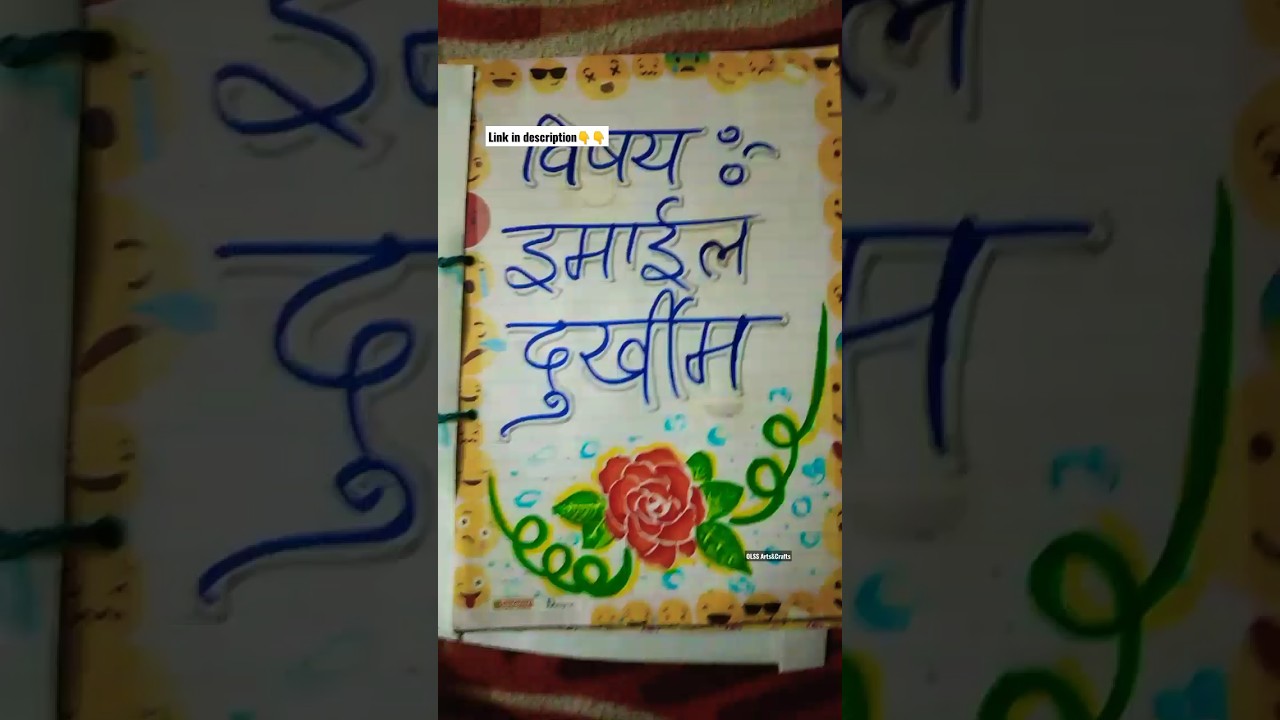 Link in description👇👇
विषय :
इमाईल
दुर्खीम
OLSS Arts&Crafts